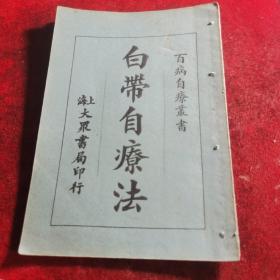 百病自療叢書
白帶自療法
上海大眾書局印行